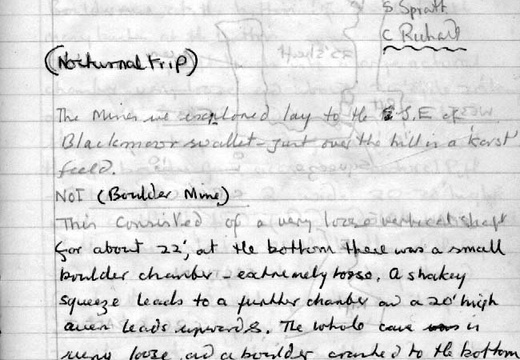 S Spratt
C Richard
(Nocturnal Trip)
The Mines we explored lay to the S.S.E of
Blackmoor swallet - just over the hill in a karst
field.
NOT (Boulder Mine)
This consisted of a very loose vertical shaft
for about 22', at the bottom there was a small
boulder chamber - extremely loose. A shakey
squeeze leads to a further chamber and a 20' high
aven leads upwards. The whole cave is
very loose and a boulder crashed to the bottom